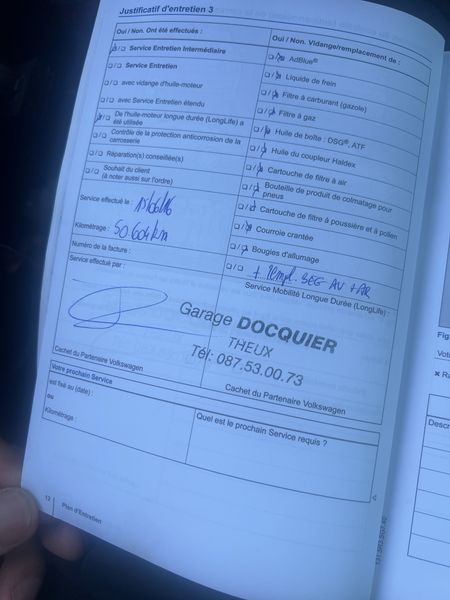 Justificatif d'entretien 3
Oui / Non. Ont été effectués :
❑/❑ Service Entretien Intermédiaire
❑/❑ Service Entretien
❑/❑ avec vidange d'huile-moteur
❑/❑ avec Service Entretien étendu
❑/❑ De l'huile-moteur longue durée (LongLife) a
été utilisée
❑/❑ Contrôle de la protection anticorrosion de la
carrosserie
❑/❑ Réparation(s) conseillée(s)
❑/❑ Souhait du client
(à noter aussi sur l'ordre)
Service effectué le :
Kilométrage : 50.604 km
Numéro de la facture :
Service effectué par :
Cachet du Partenaire Volkswagen
Oui / Non. Vidange/remplacement de :
❑/❑ AdBlue®
❑/❑ Liquide de frein
❑/❑ Filtre à carburant (gazole)
❑/❑ Filtre à gaz
❑/❑ Huile de boîte : DSG®, ATF
❑/❑ Huile du coupleur Haldex
❑/❑ Cartouche de filtre à air
❑/❑ Bouteille de produit de colmatage pour
pneus
❑/❑ Cartouche de filtre à poussière et à pollen
❑/❑ Courroie crantée
❑/❑ Bougies d'allumage
❑/❑ + Rempl. BEG AV + AR
Service Mobilité Longue Durée (LongLife) :
Garage DOCQUIER
THEUX
Tél: 087.53.00.73
Cachet du Partenaire Volkswagen
Votre prochain Service
est fixé au (date) :
ou
Kilométrage :
Quel est le prochain Service requis ?
12 Plan d'Entretien
Fig
Vot
Descr